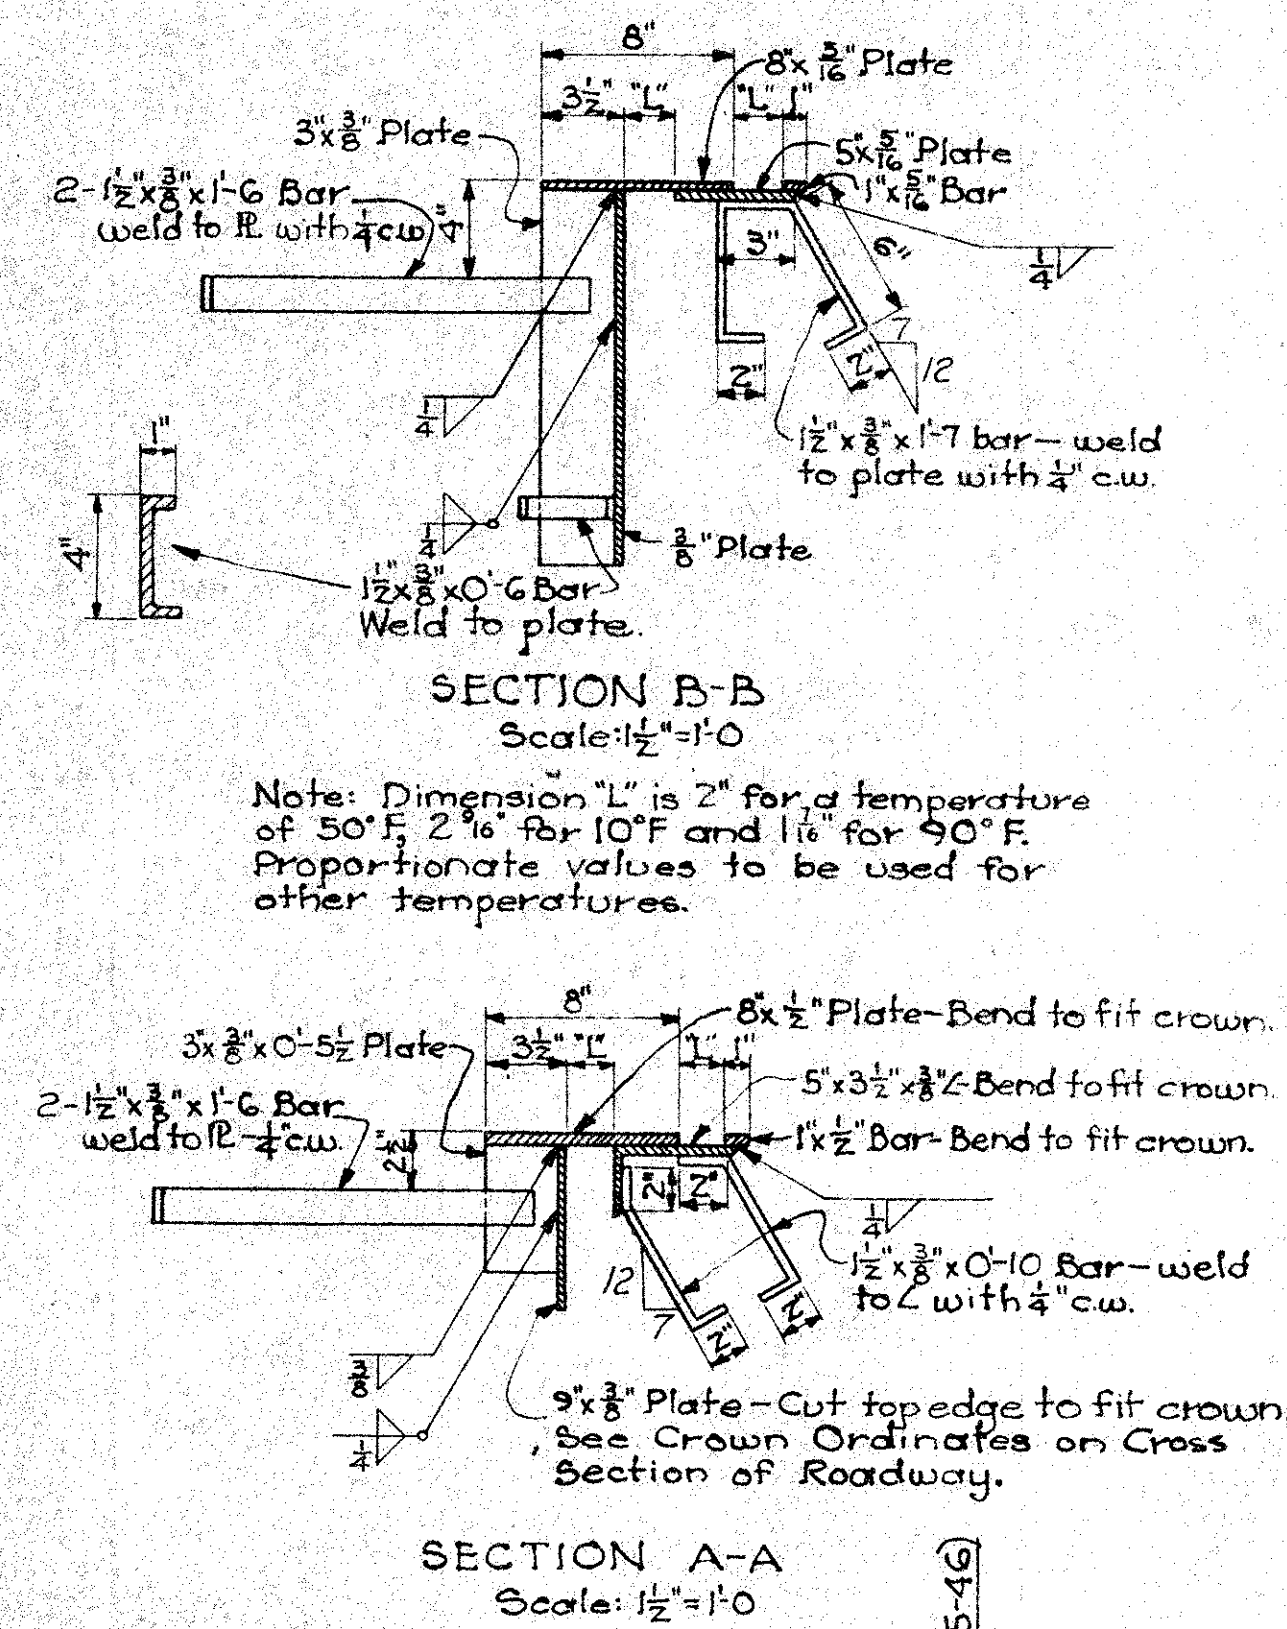 8"
8"x 5/16" Plate
3 1/2" "L" "L" 1"
3"x 3/8" Plate
5"x 5/16" Plate
1"x 5/16" Bar
2-1 1/2"x 3/8"x 1'-6 Bar
weld to PL with 1/4 c.w.
4"
3"
6"
1/4
7
12
2"
2"
1/4
1"
1 1/2"x 3/8"x 1'-7 bar—weld
to plate with 1/4" c.w.
4"
1/4
3/8" Plate
1 1/2"x 3/8"x 0'-6 Bar
Weld to plate.
SECTION B-B
Scale: 1 1/2"=1'-0
Note: Dimension "L" is 2" for a temperature
of 50°F, 2 9/16" for 10°F and 1 7/16" for 90°F.
Proportionate values to be used for
other temperatures.
8"
8"x 1/2" Plate-Bend to fit crown.
3"x 3/8"x 0'-5 1/2 Plate
3 1/2" "L" "L" 1"
5"x 3 1/2"x 3/8" ∠-Bend to fit crown.
2-1 1/2"x 3/8"x 1'-6 Bar
weld to PL-1/4" c.w.
2 1/2"
1"x 1/2" Bar-Bend to fit crown.
2"
2"
1/4
12
7
1 1/2"x 3/8"x 0'-10 Bar—weld
to ∠ with 1/4" c.w.
2"
2"
3/8
1/4
9"x 3/8" Plate—Cut top edge to fit crown
See Crown Ordinates on Cross
Section of Roadway.
SECTION A-A
Scale: 1 1/2"=1'-0
5-46)